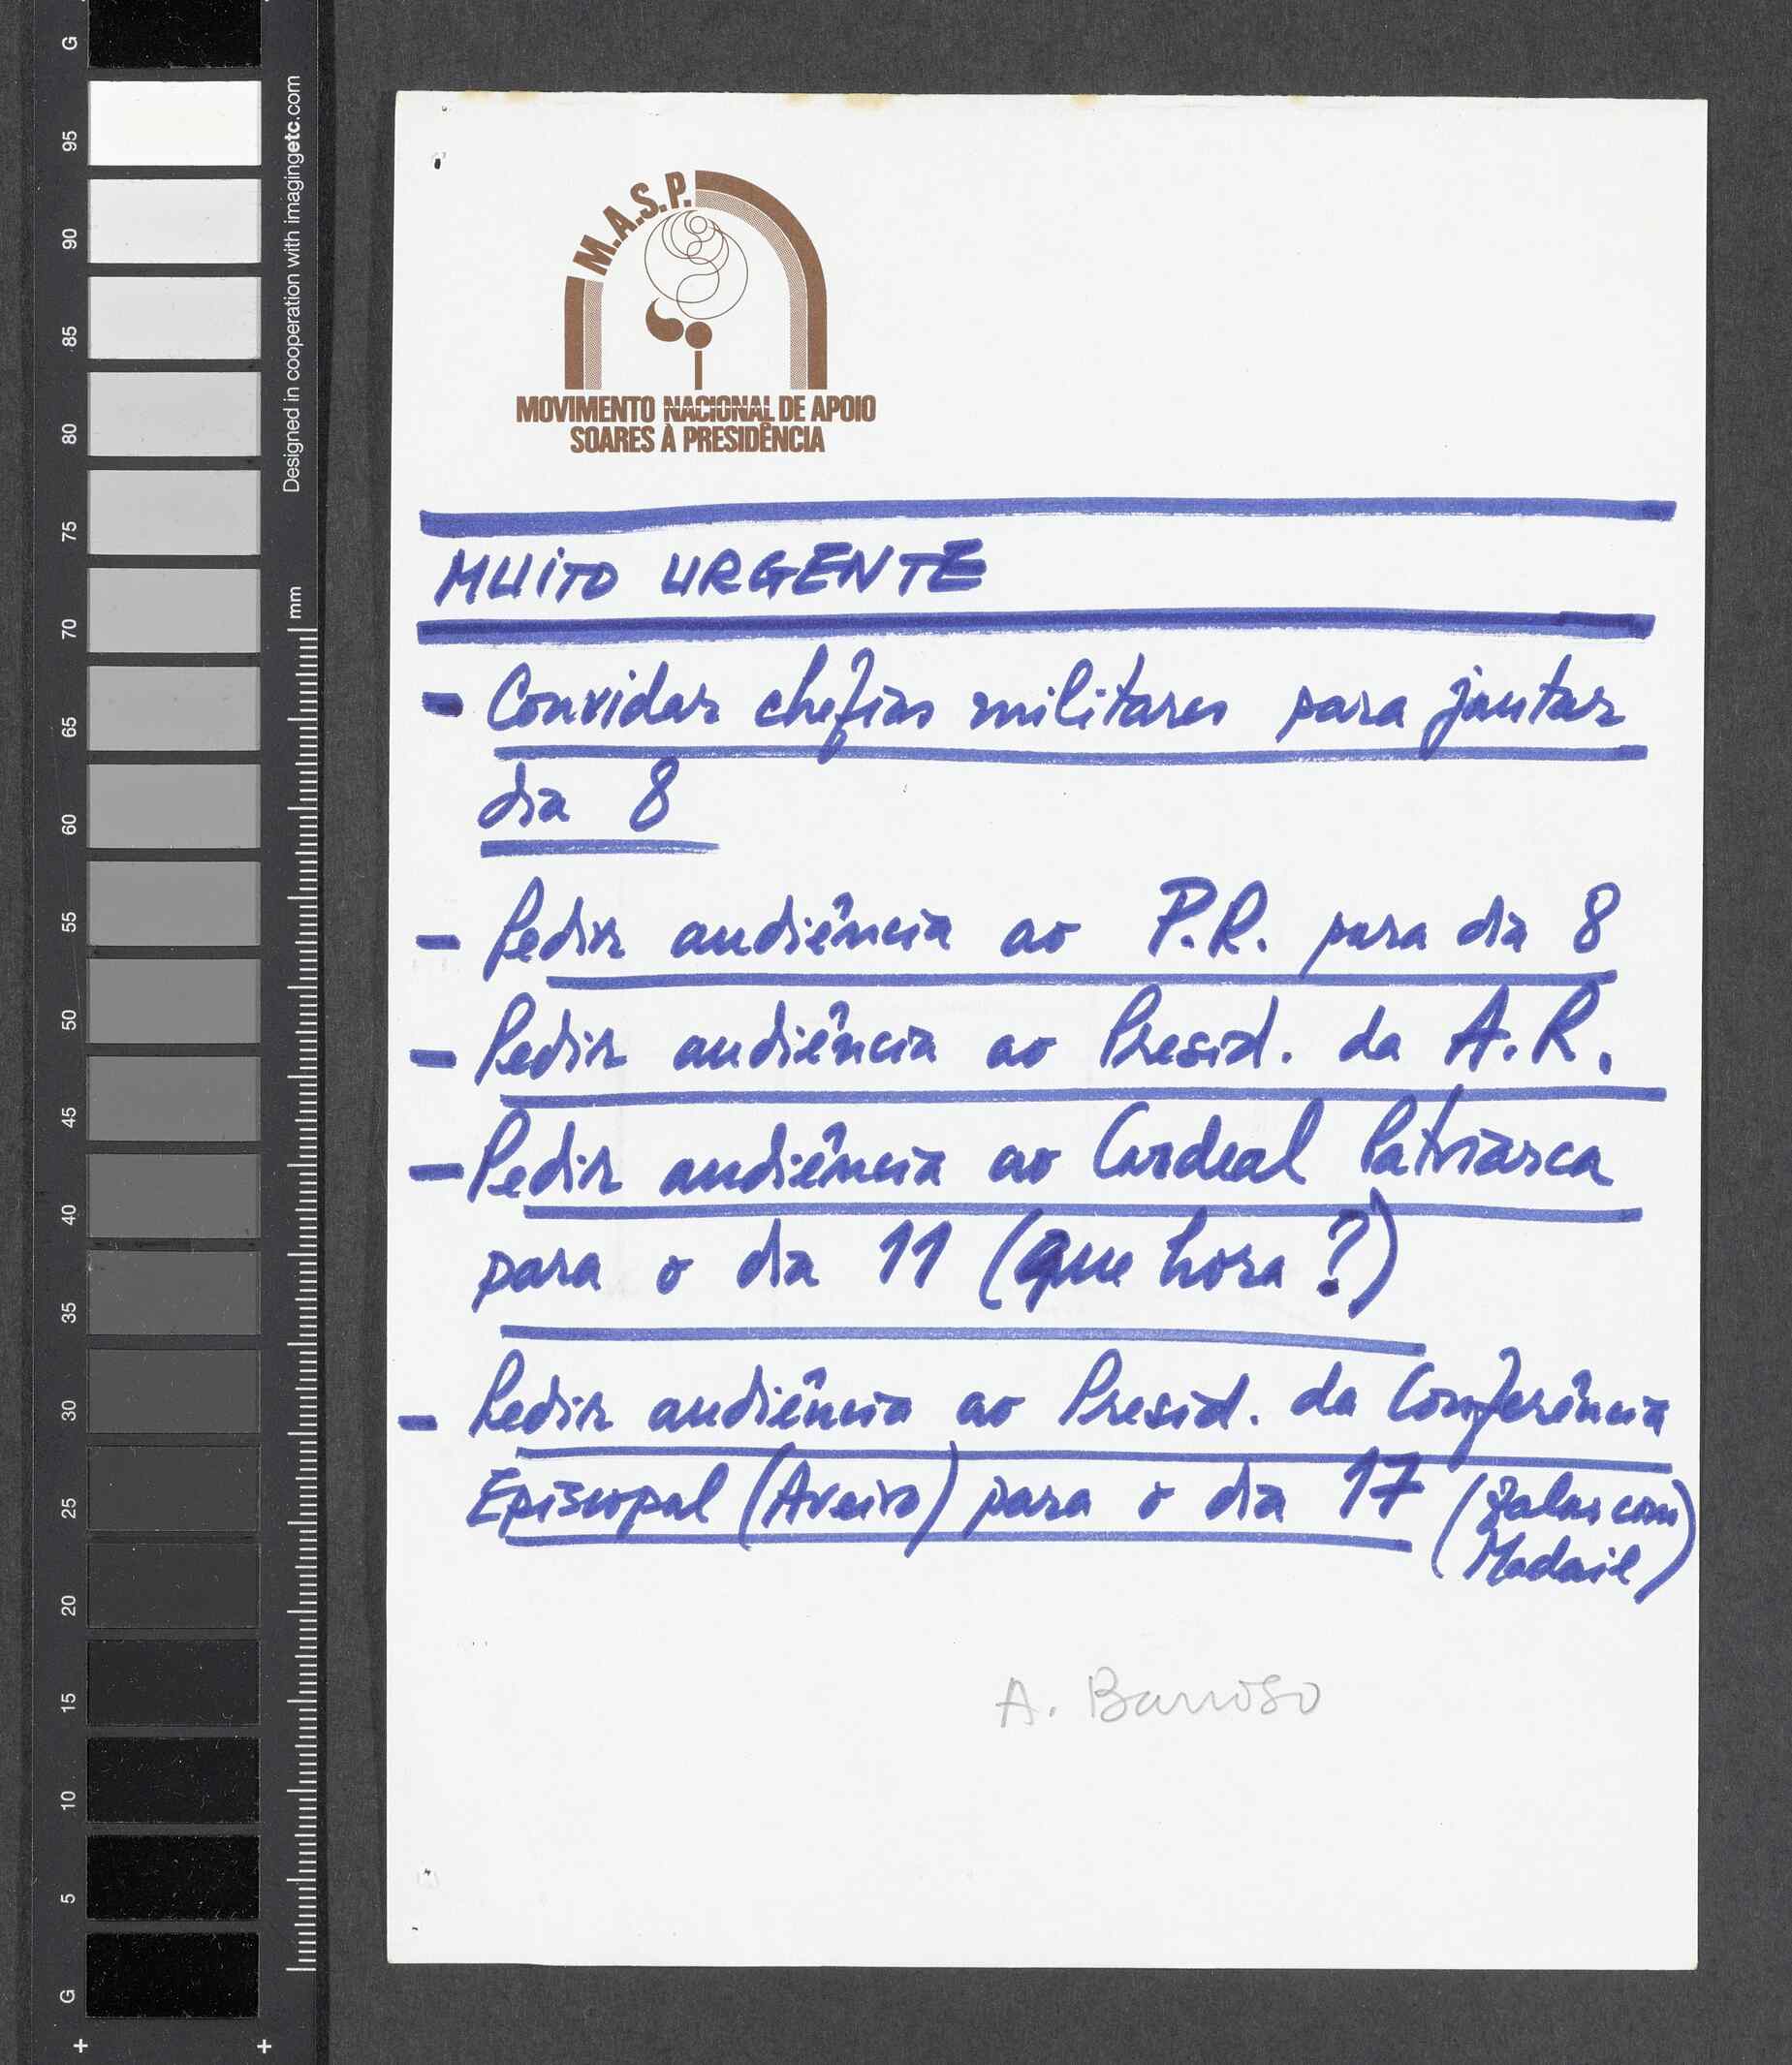 M.A.S.P.
MOVIMENTO NACIONAL DE APOIO
SOARES À PRESIDÊNCIA
MUITO URGENTE
- Convidar chefias militares para jantar
dia 8
- Pedir audiência ao P.R. para dia 8
- Pedir audiência ao Presid. da A.R.
- Pedir audiência ao Cardeal Patriarca
para o dia 11 (que hora?)
- Pedir audiência ao Presid. da Conferência
Episcopal (Aveiro) para o dia 17 (falar com
Madail)
A. Barroso
G
95
90
85
80
75
70
65
60
55
50
45
40
35
30
25
20
15
10
5
G
Designed in cooperation with imagingetc.com
mm